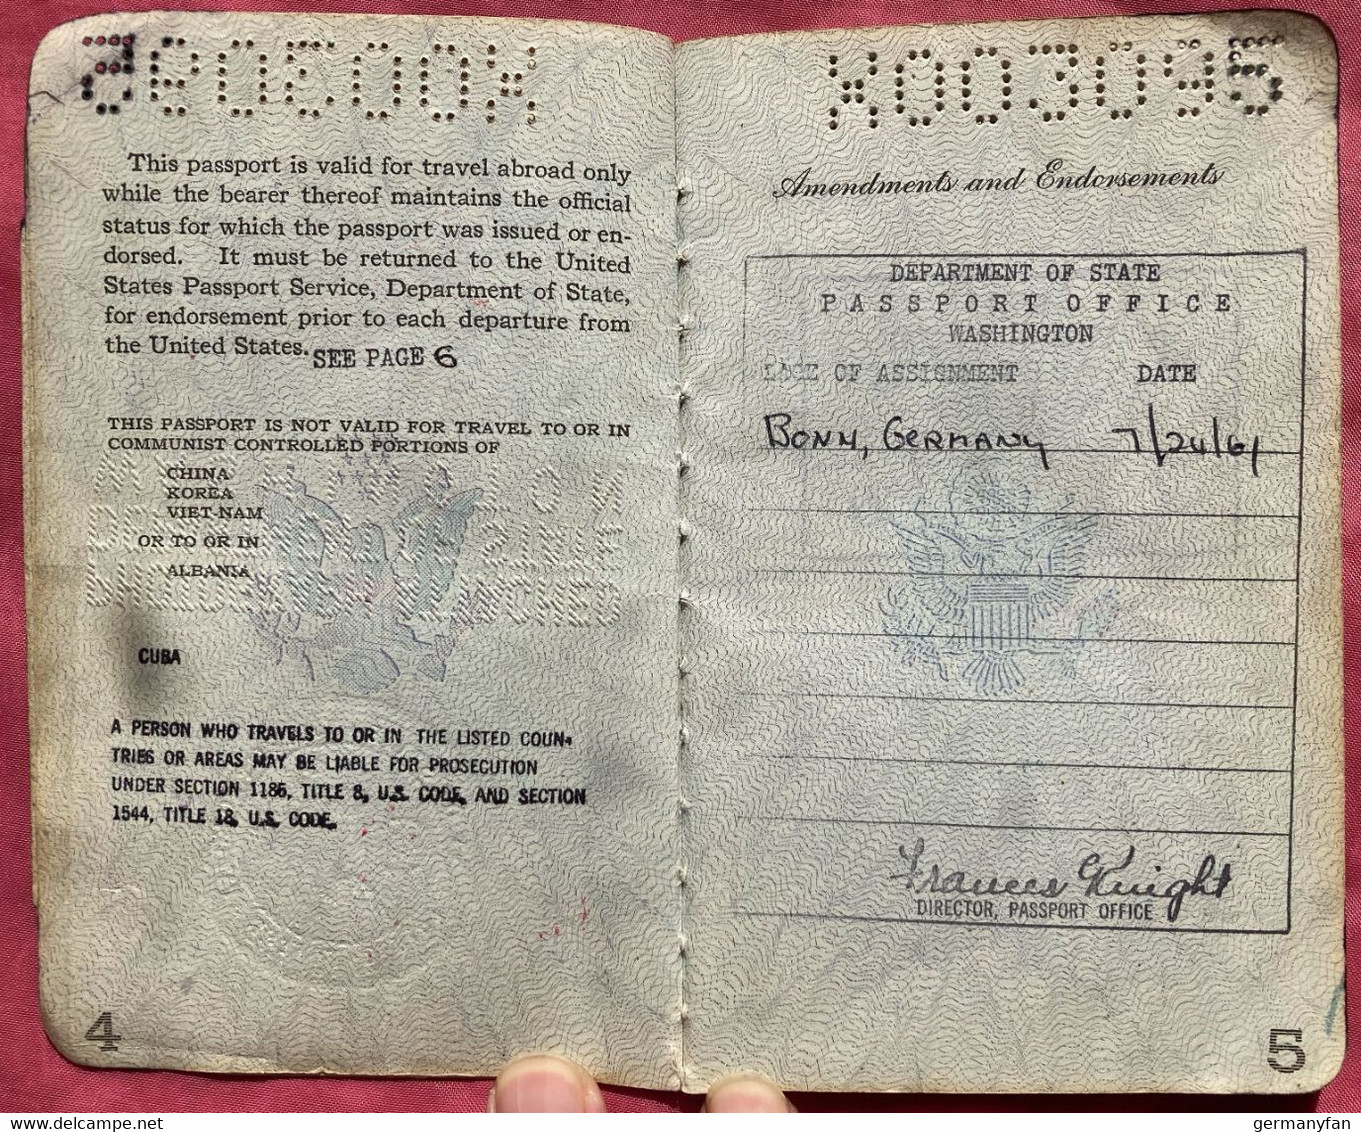 X003095
This passport is valid for travel abroad only
while the bearer thereof maintains the official
status for which the passport was issued or en-
dorsed. It must be returned to the United
States Passport Service, Department of State,
for endorsement prior to each departure from
the United States. SEE PAGE 6
THIS PASSPORT IS NOT VALID FOR TRAVEL TO OR IN
COMMUNIST CONTROLLED PORTIONS OF
CHINA
KOREA
VIET-NAM
OR TO OR IN
ALBANIA
CUBA
A PERSON WHO TRAVELS TO OR IN THE LISTED COUN-
TRIES OR AREAS MAY BE LIABLE FOR PROSECUTION
UNDER SECTION 1185, TITLE 8, U.S. CODE, AND SECTION
1544, TITLE 18, U.S. CODE.
4
X003095
Amendments and Endorsements
DEPARTMENT OF STATE
PASSPORT OFFICE
WASHINGTON
LACE OF ASSIGNMENT DATE
BONN, GERMANY 7/24/61
Frances G Knight
DIRECTOR, PASSPORT OFFICE
5
germanyfan